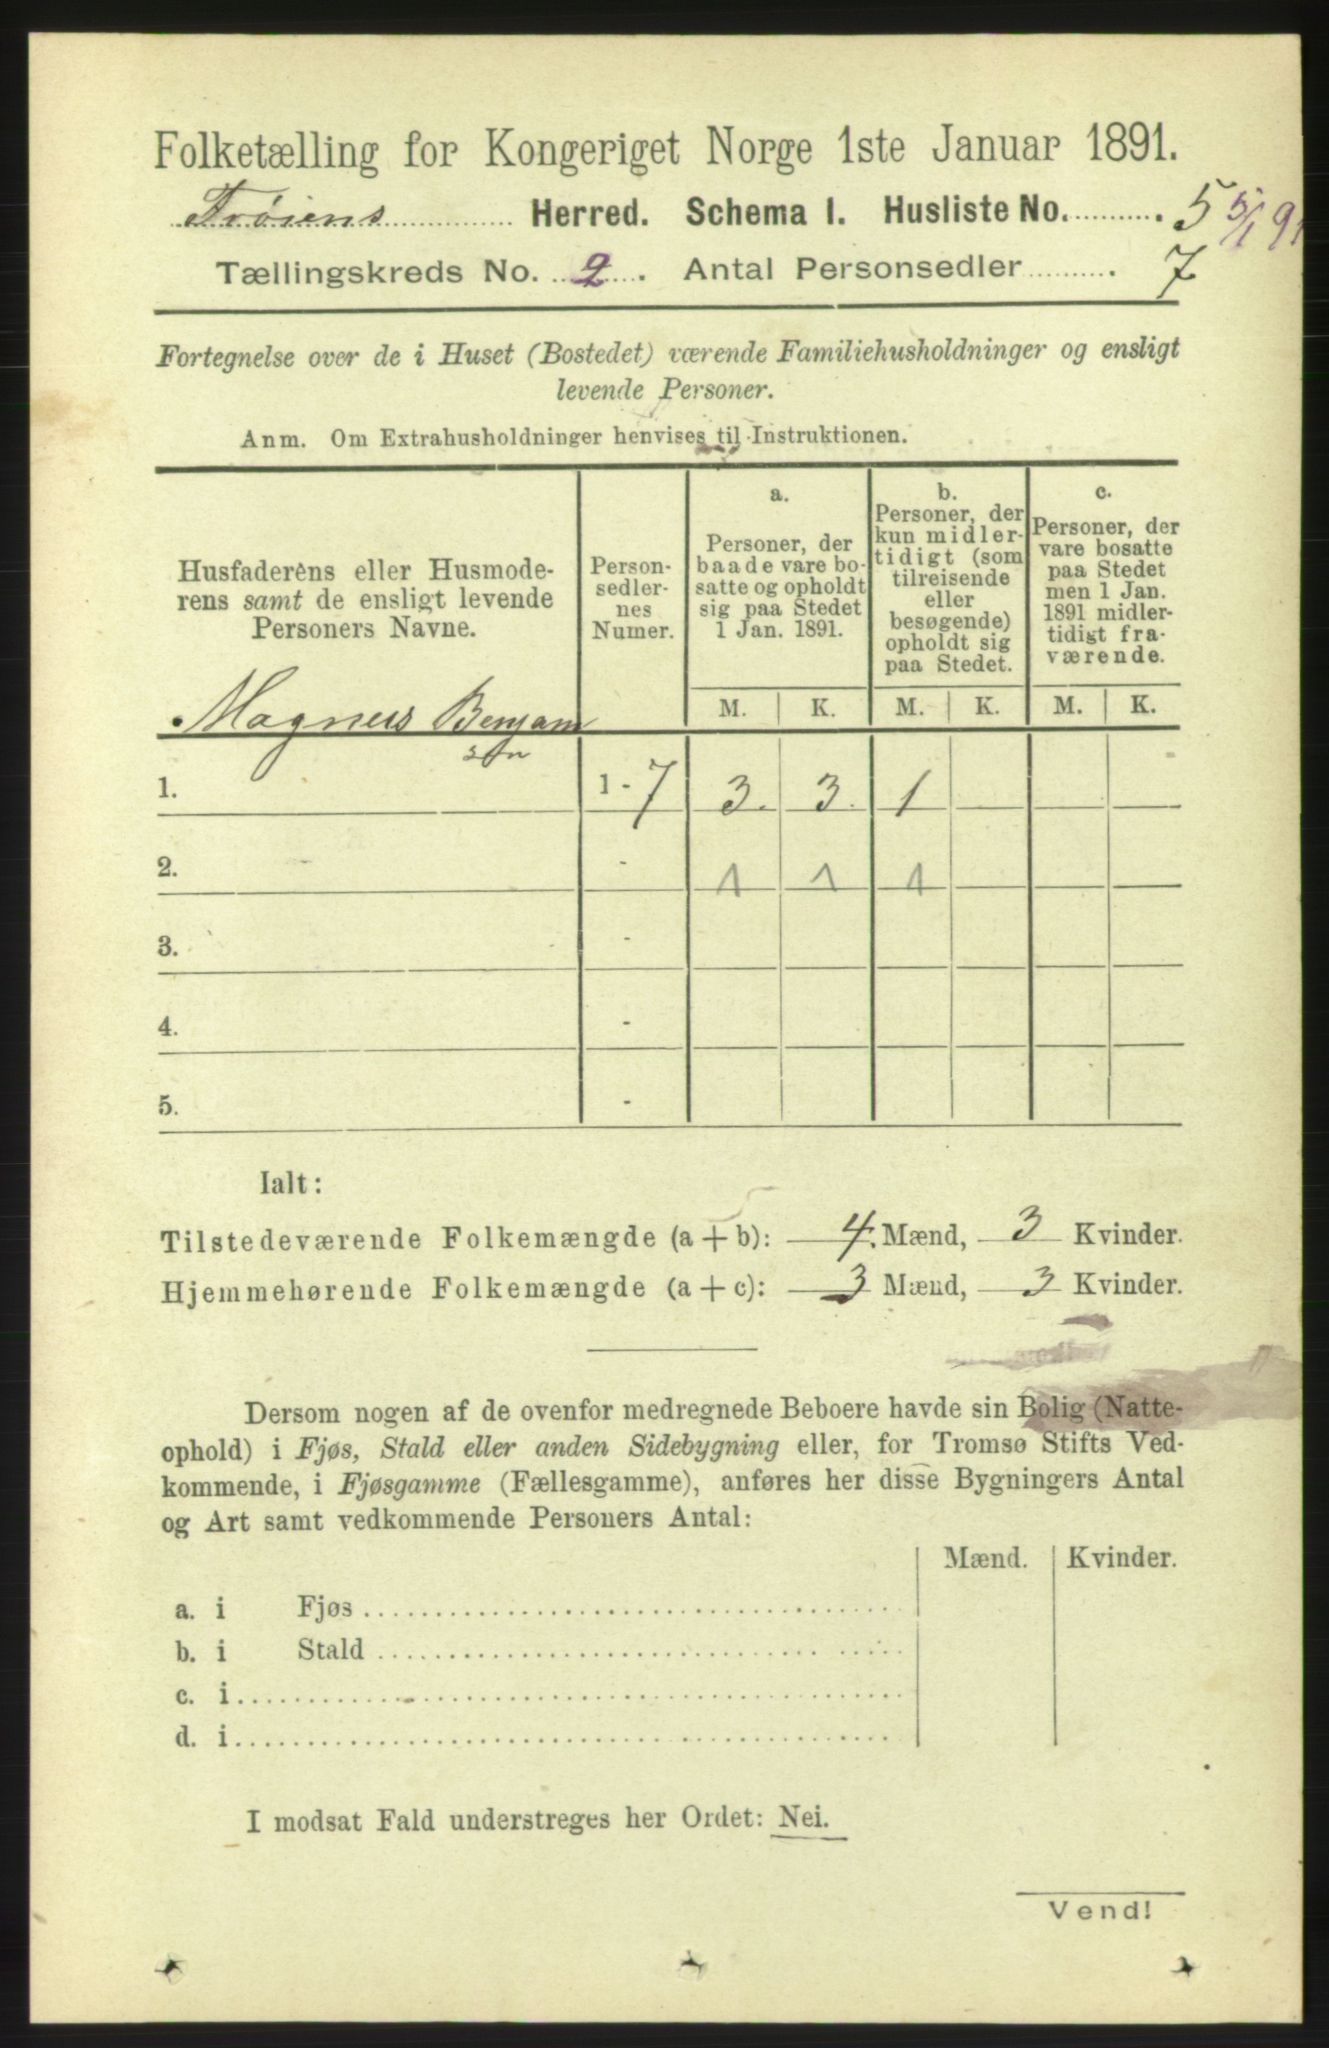 Folketælling for Kongeriget Norge 1ste Januar 1891.
Frøiens Herred. Schema I. Husliste No. 5 5/1 91
Tællingskreds No. 2. Antal Personsedler 7
Fortegnelse over de i Huset (Bostedet) værende Familiehusholdninger og ensligt
levende Personer.
Anm. Om Extrahusholdninger henvises til Instruktionen.
Husfaderens eller Husmode-
rens samt de ensligt levende
Personers Navne.
Person-
sedler-
nes
Numer.
a.
Personer, der
baade vare bo-
satte og opholdt
sig paa Stedet
1 Jan. 1891.
b.
Personer, der
kun midler-
tidigt (som
tilreisende
eller
besøgende)
opholdt sig
paa Stedet.
c.
Personer, der
vare bosatte
paa Stedet
men 1 Jan.
1891 midler-
tidigt fra-
værende.
M. K. M. K. M. K.
Magnus Benjam
sen
1. 1 - 7 3. 3. 1
2. - 1 1 1
3. -
4. -
5. -
Ialt:
Tilstedeværende Folkemængde (a + b): 4. Mænd, 3 Kvinder.
Hjemmehørende Folkemængde (a + c): 3 Mænd, 3 Kvinder.
Dersom nogen af de ovenfor medregnede Beboere havde sin Bolig (Natte-
ophold) i Fjøs, Stald eller anden Sidebygning eller, for Tromsø Stifts Ved-
kommende, i Fjøsgamme (Fællesgamme), anføres her disse Bygningers Antal
og Art samt vedkommende Personers Antal:
Mænd. Kvinder.
a. i Fjøs
b. i Stald
c. i
d. i
I modsat Fald understreges her Ordet: Nei.
Vend!